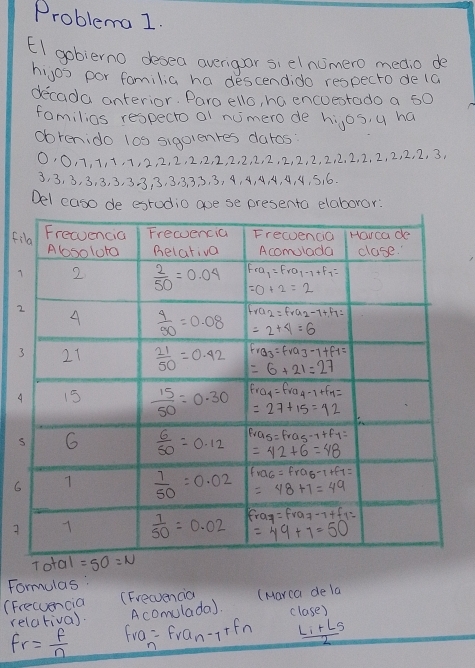 Problema 1.
El gobierno desea averigar si el número medio de
hijos por familia ha descendido respecto de la
década anterior. Para ello, ha encuestado a 50
familias respecto al número de hijos, y ha
obtenido los siguientes datos:
0,0,1,1,1,1,2,2,2,2,2,2,2,2,2,2,2,2,2,2,2,2,2,2,2,2,2,3,
3,3,3,3,3,3,3,3,3,3,3,3,3,3,4,4,4,4,4,4,5,6.
Del caso de estudio que se presenta elaborar:
Fila
Frecuencia Absoluta
Frecuencia Relativa
Frecuencia Acomulada
Marca de clase.
1
2
2/50 = 0.04
fra1=fra1-1+f1=
=0+2=2
2
4
4/50 = 0.08
fra2=fra2-1+f1=
= 2+4=6
3
21
21/50 = 0.42
fra3=fra3-1+f1=
= 6+21=27
4
15
15/50 = 0.30
fra4=fra4-1+f1=
= 27+15=42
5
6
6/50 = 0.12
fra5=fra5-1+f1=
= 42+6=48
6
1
1/50 = 0.02
fra6=fra6-1+f1=
= 48+1=49
7
1
1/50 = 0.02
fra7=fra7-1+f1=
= 49+1=50
Total=50=N
Formulas:
(Frecuencia relativa).
fr= f/n
(Frecuencia Acomulada).
fra n = fra n-1 + fn
(Marca de la clase)
Li+Ls/2